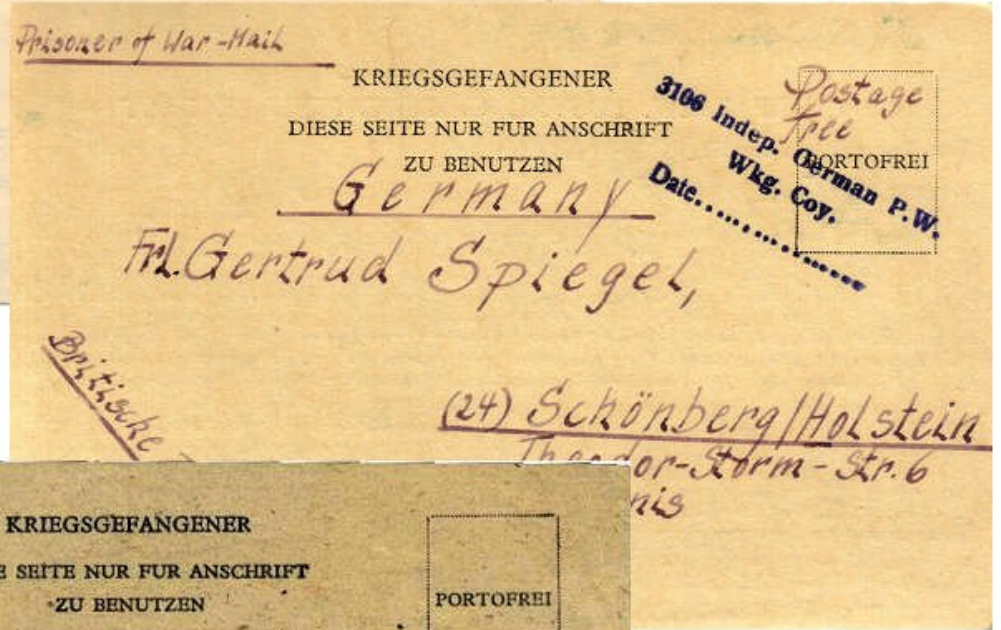 Prisoner of War-Mail
KRIEGSGEFANGENER
DIESE SEITE NUR FUR ANSCHRIFT
ZU BENUTZEN
Postage
free
PORTOFREI
3106 Indep. German P.W.
Wkg. Coy.
Date..................
Germany
Frl. Gertrud Spiegel,
Britische
(24) Schönberg/Holstein
Theodor-Storm-Str. 6
nis
KRIEGSGEFANGENER
E SEITE NUR FUR ANSCHRIFT
ZU BENUTZEN
PORTOFREI